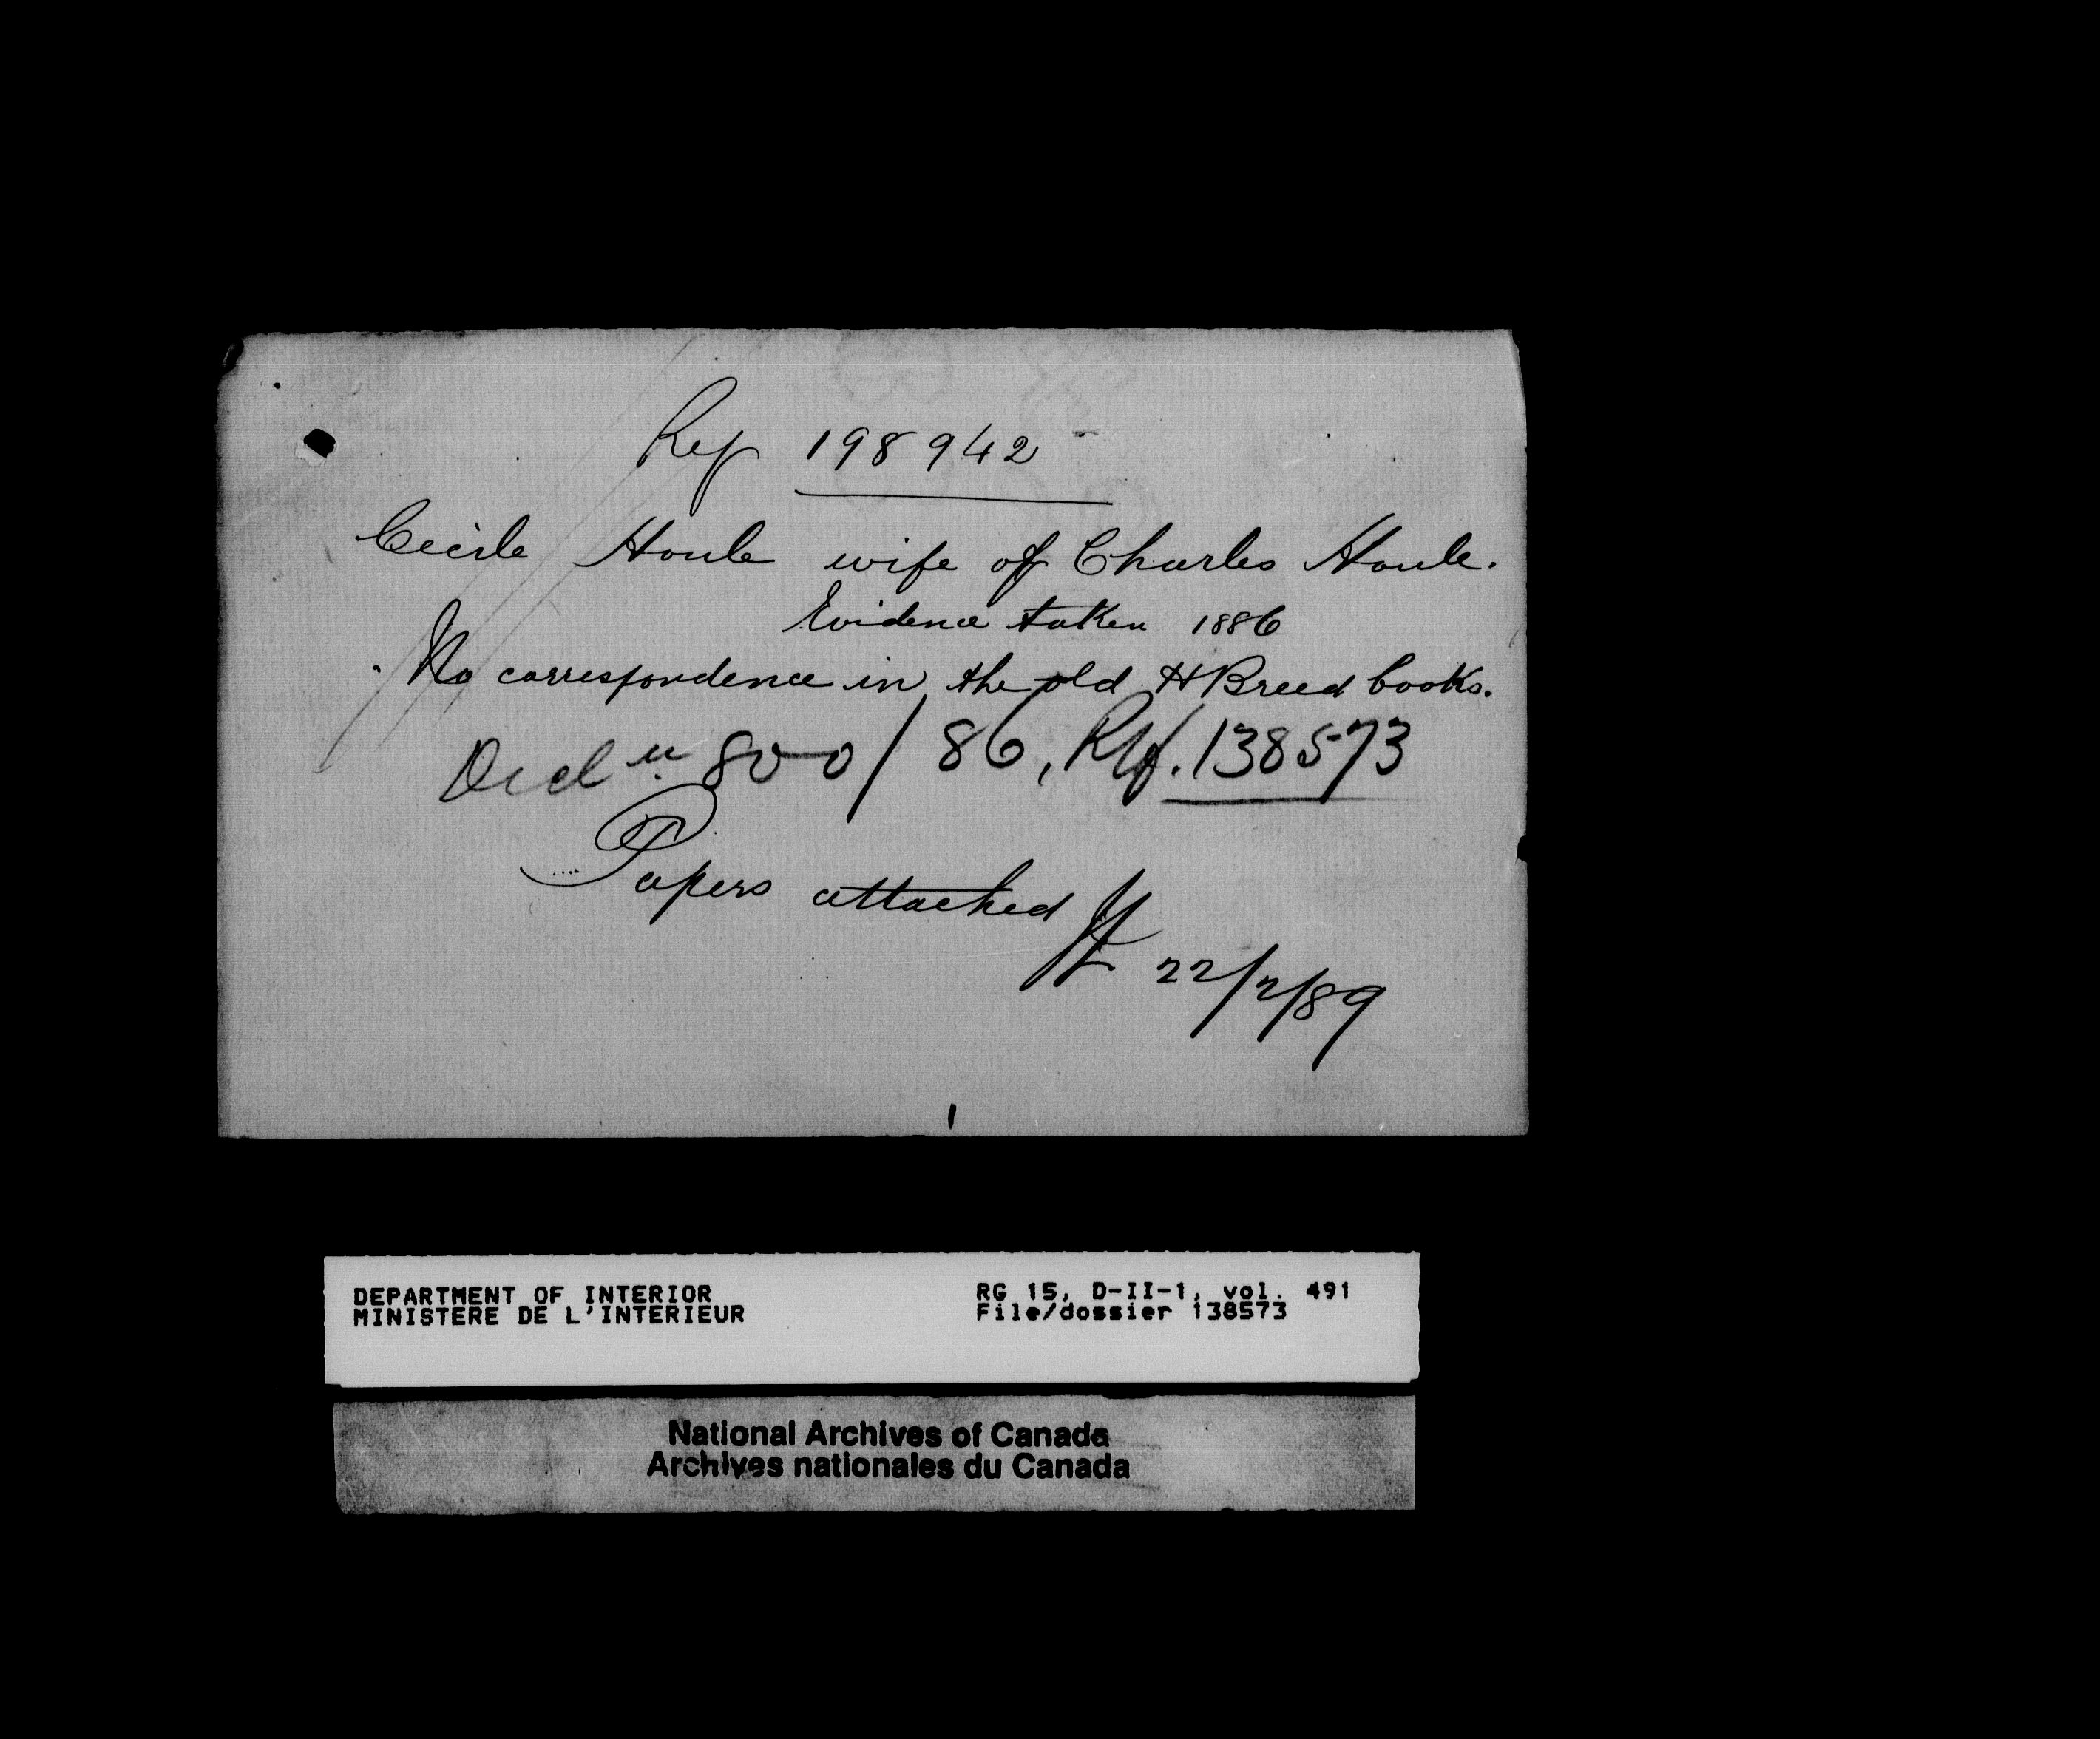 Ref 198942
Cecile Houle wife of Charles Houle.
Evidence taken 1886
No correspondence in the old H Breed books.
Decl n 800/86, Ref. 138573
Papers attached
22/2/89
DEPARTMENT OF INTERIOR RG 15, D-II-1, vol. 491
MINISTERE DE L'INTERIEUR File/dossier 138573
National Archives of Canada
Archives nationales du Canada